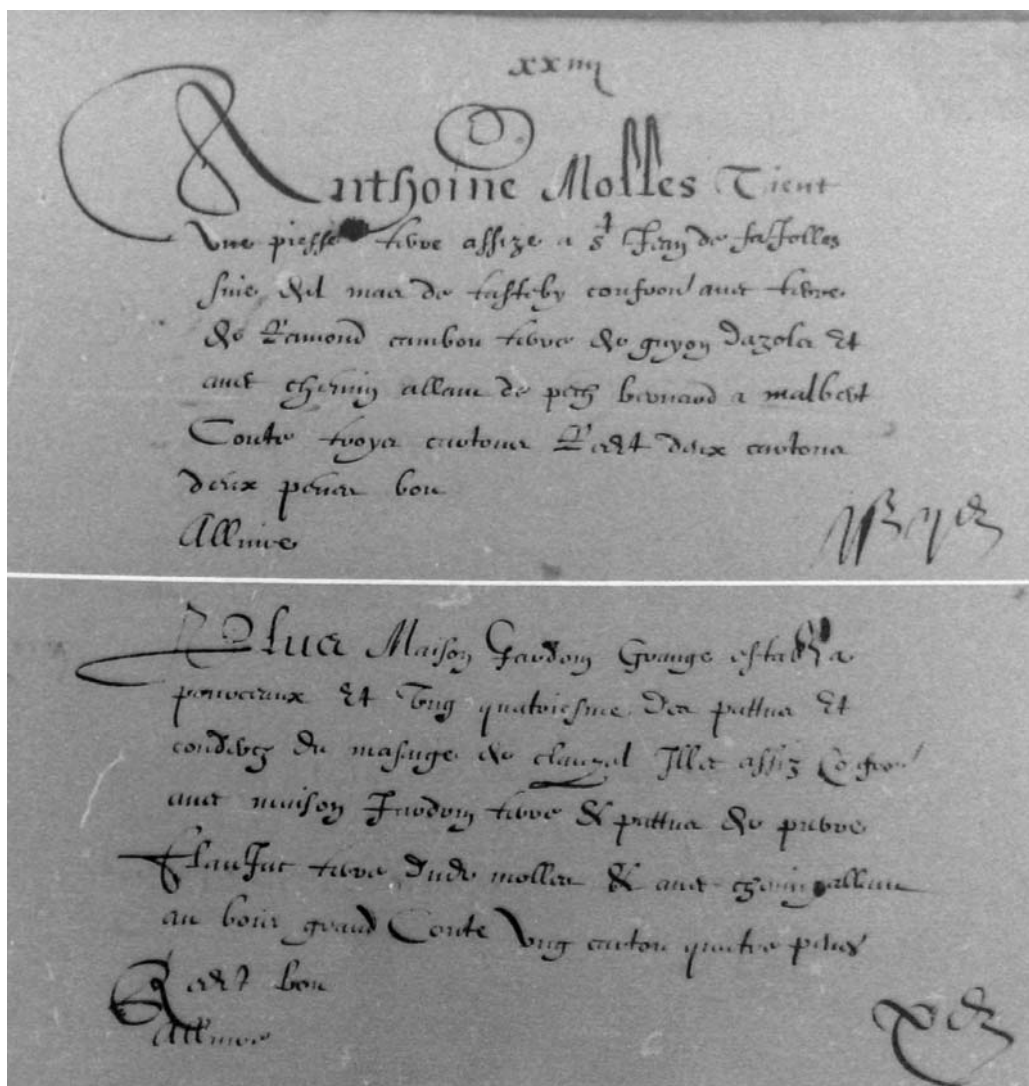 xxiiij
Anthoine Molles Tient
Une piesse terre assize a st Jean de
de Ramond cambou terre de guyon dazols et
avec chemin allant de pech bernard a malbert
Conte troys cartons Rest deux cartons
deux penes bon
Allivre
Plus Maison Jardin Grange estable a
pourceaux et Ung quatriesme des pattus et
du masage de clauzel Illec assiz
avec maison Jardin terre & pattus de pierre
terre dud molles & avec chemin allant
au bois grand Conte Ung carton quatre penes
Rest bon
Allivre